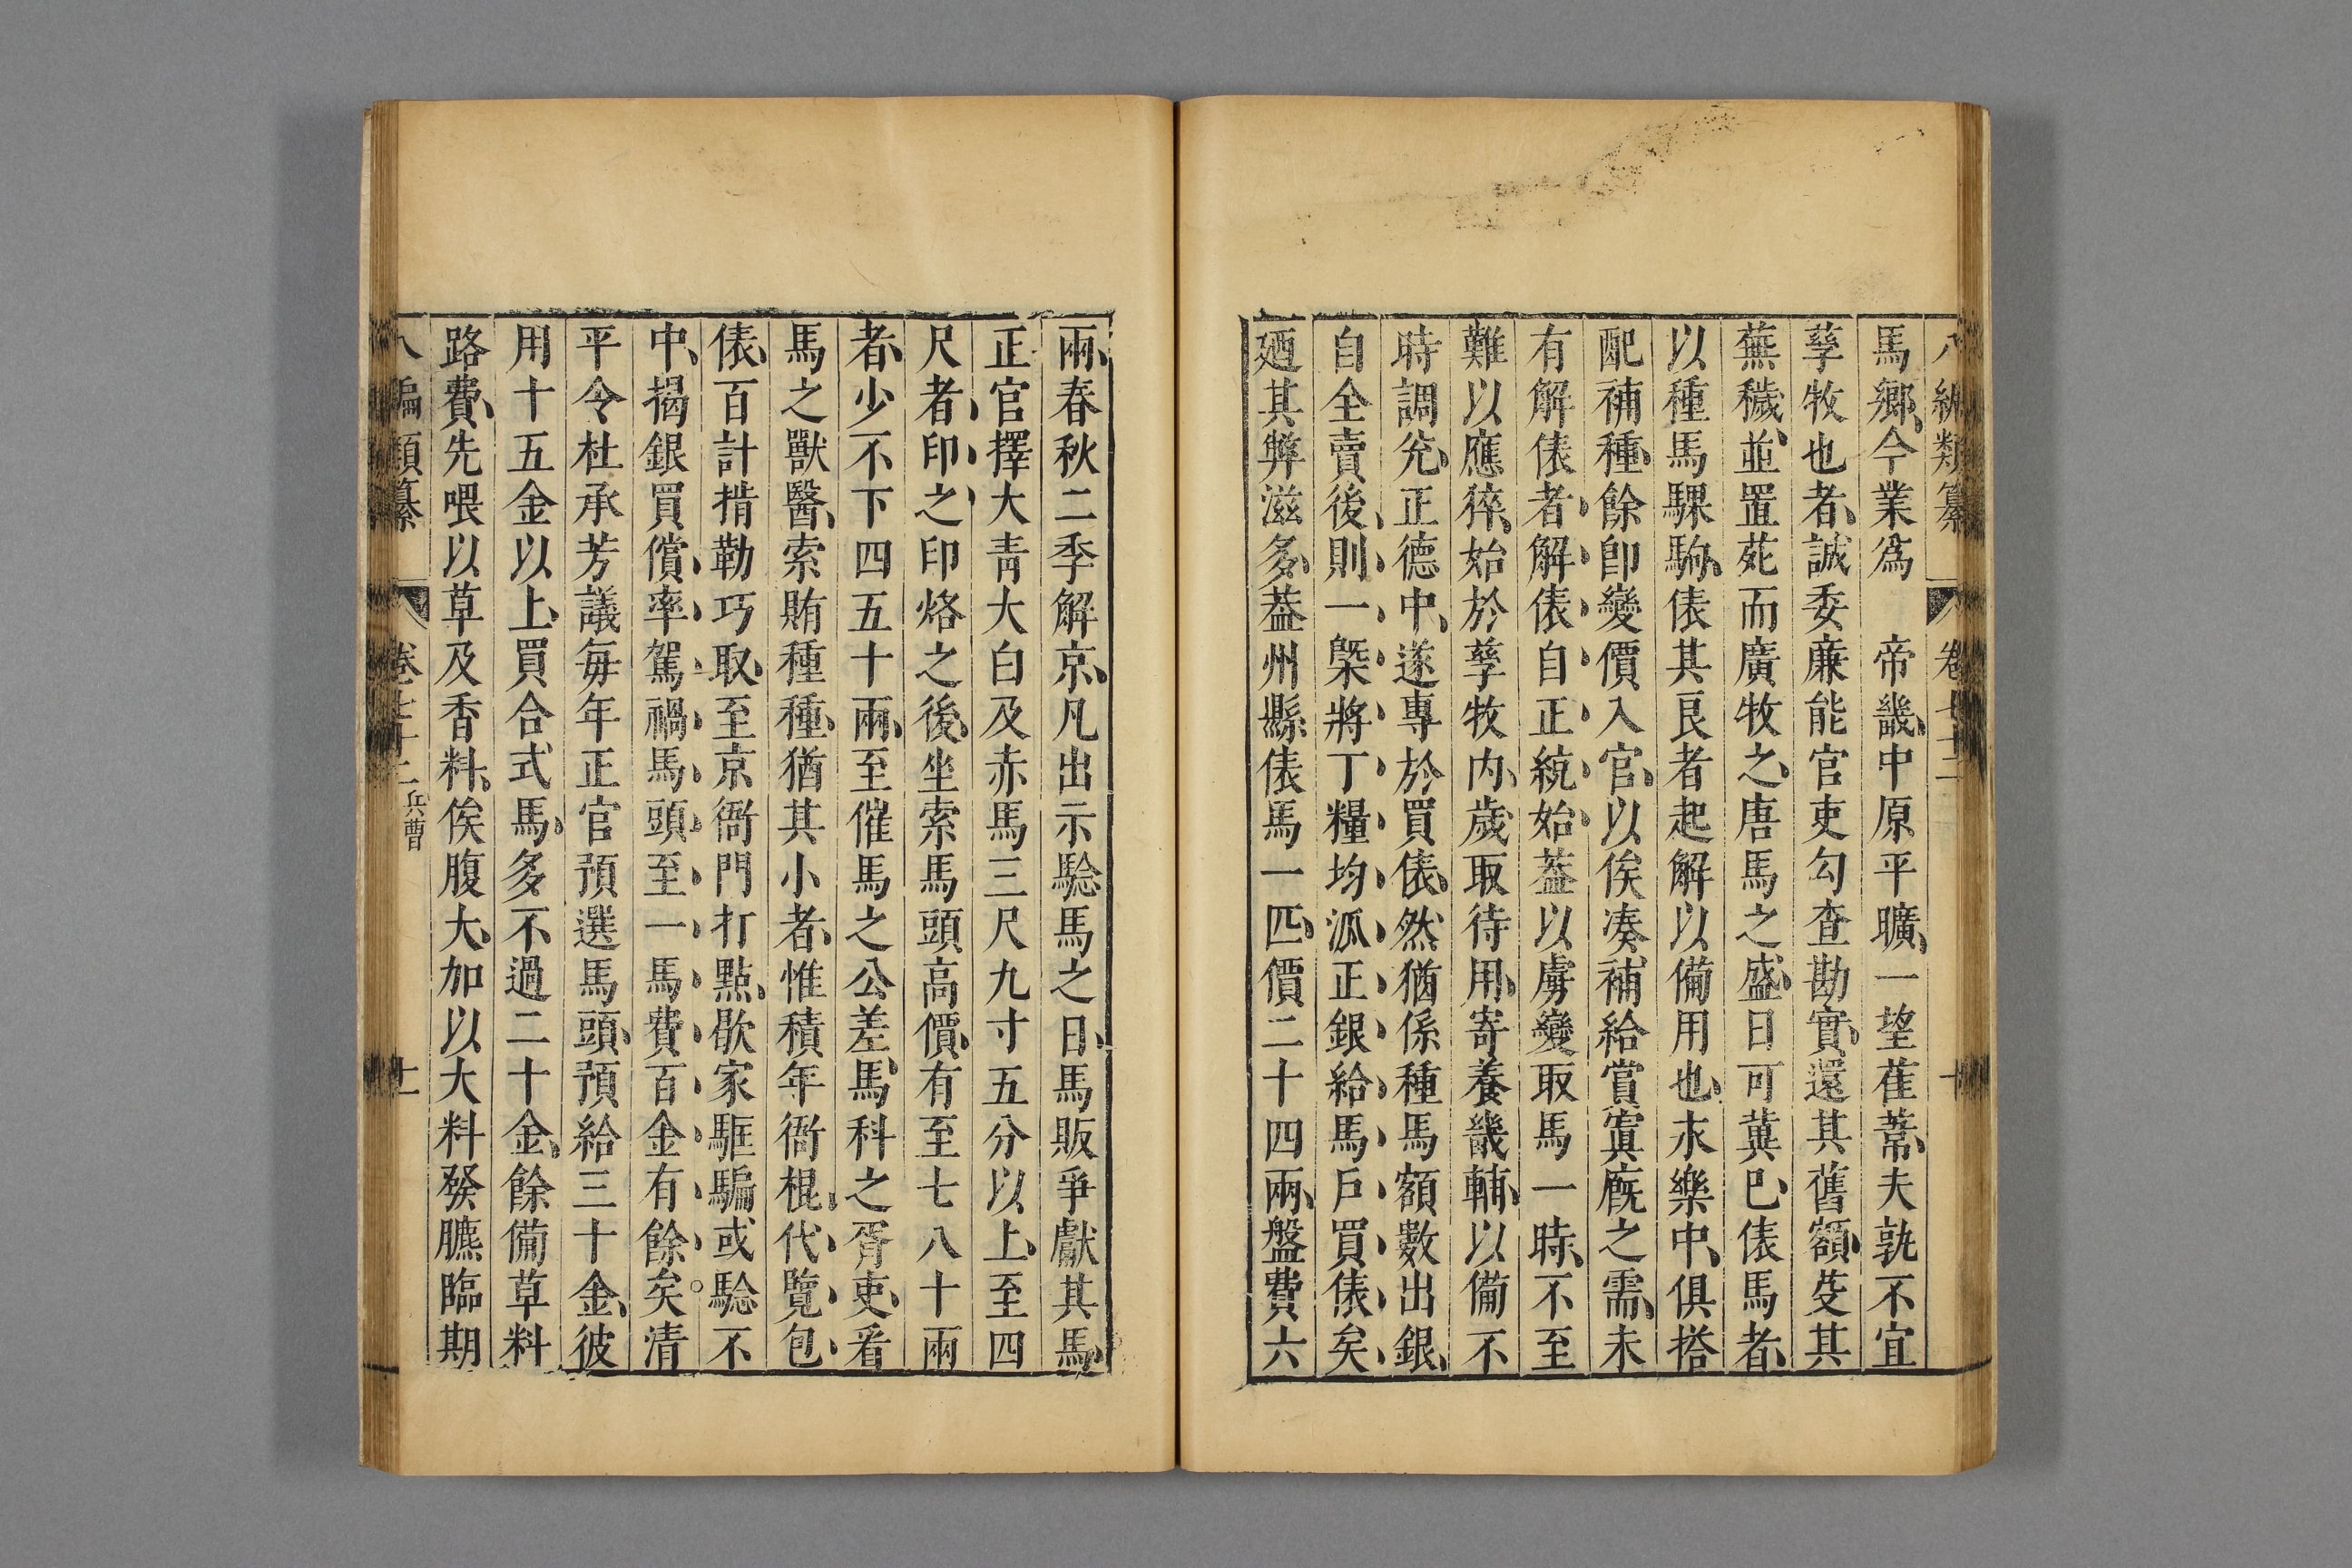 八編類纂 卷七十二 十
馬鄉、今業爲 帝畿、中原平曠、一望萑葦、夫孰不宜
孳牧也者、誠委廉能官吏勾查勘實、還其舊額、芟其
蕪穢、並置苑而廣牧之、唐馬之盛、日可冀巳、俵馬者、
以種馬騍駒、俵其良者起解以備用也、永樂中、俱搭
配補種、餘卽變價入官、以俟凑補給賞寘廐之需、未
有解俵者、解俵自正統始、葢以虜變取馬一時、不至
難以應猝、始於孳牧内、歲取待用、寄養畿輔、以備不
時調兊、正德中、遂專於買俵、然猶係種馬額數出銀、
自全賣後、則一槩將丁糧均派正銀給馬戶買俵矣、
廼其弊滋多、葢州縣俵馬一匹、價二十四兩、盤費六
兩、春秋二季解京、凡出示騐馬之日、馬販爭獻其馬、
正官擇大靑大白及赤馬三尺九寸五分以上、至四
尺者、印之、印烙之後、坐索馬頭高價、有至七八十兩
者、少不下四五十兩、至催馬之公差、馬科之胥吏、看
馬之獸醫、索賄種種、猶其小者、惟積年衙棍、代覽包
俵、百計掯勒巧取、至京衙門打點、歇家駆騙或騐不
中、揭銀買償、率駕禍馬頭、至一馬費百金有餘矣。清
平令杜承芳議每年正官預選馬頭、預給三十金、彼
用十五金以上、買合式馬、多不過二十金、餘備草料
路費、先喂以草及香料、俟腹大、加以大料發臕臨期
八編類纂 卷七十二 兵曹 十一